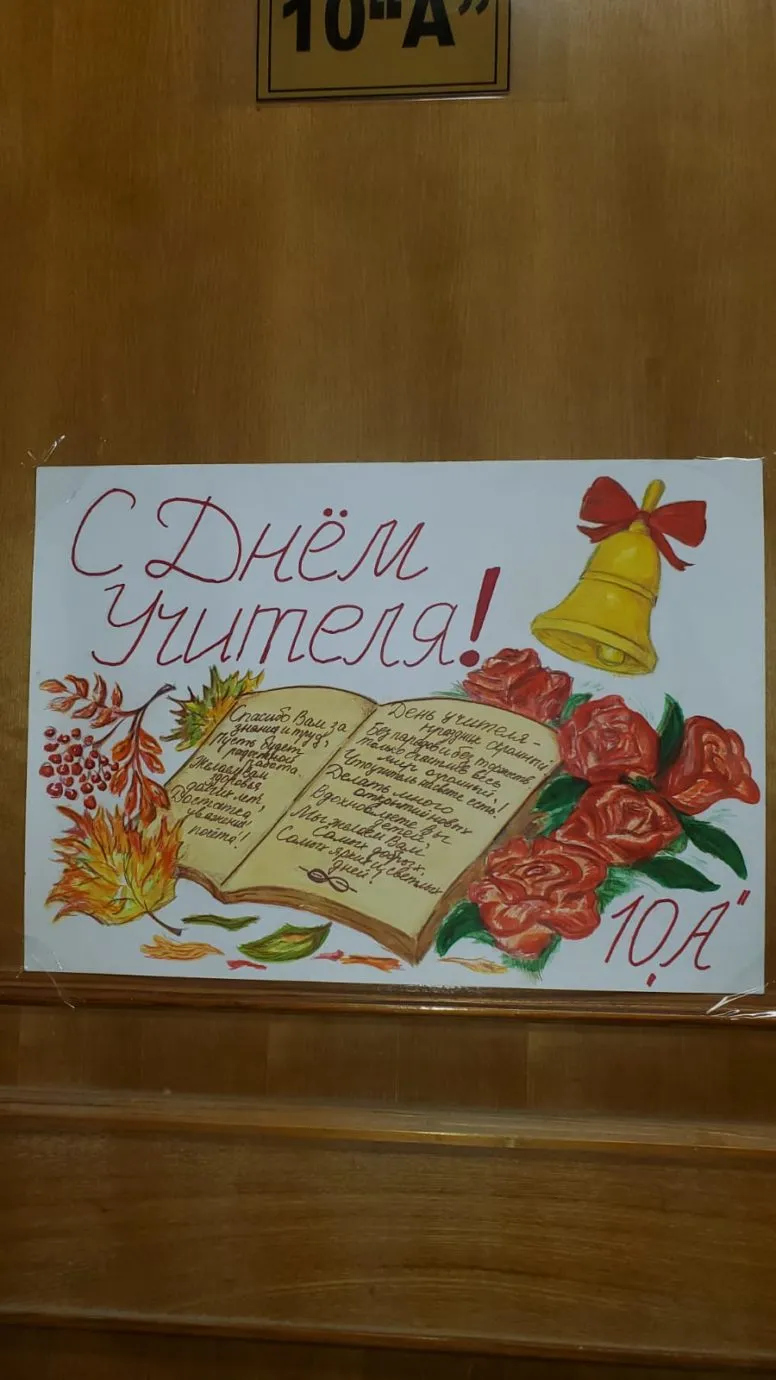 10"А"
С Днём
Учителя!
Спасибо Вам за
знания и труд,
Пусть будет
радостной
работа.
Желаем Вам
здоровья
долгих лет,
Достатка,
уважения,
почёта!
День учителя-
праздник скромный
Без парадов и без торжеств.
Только счастлив весь
мир огромный,
Что учитель на свете есть!
Делать много
открытий новых
Вдохновляете Вы
детей,
Мы желаем Вам
самых добрых,
Самых ярких, и светлых
дней!
10„А"